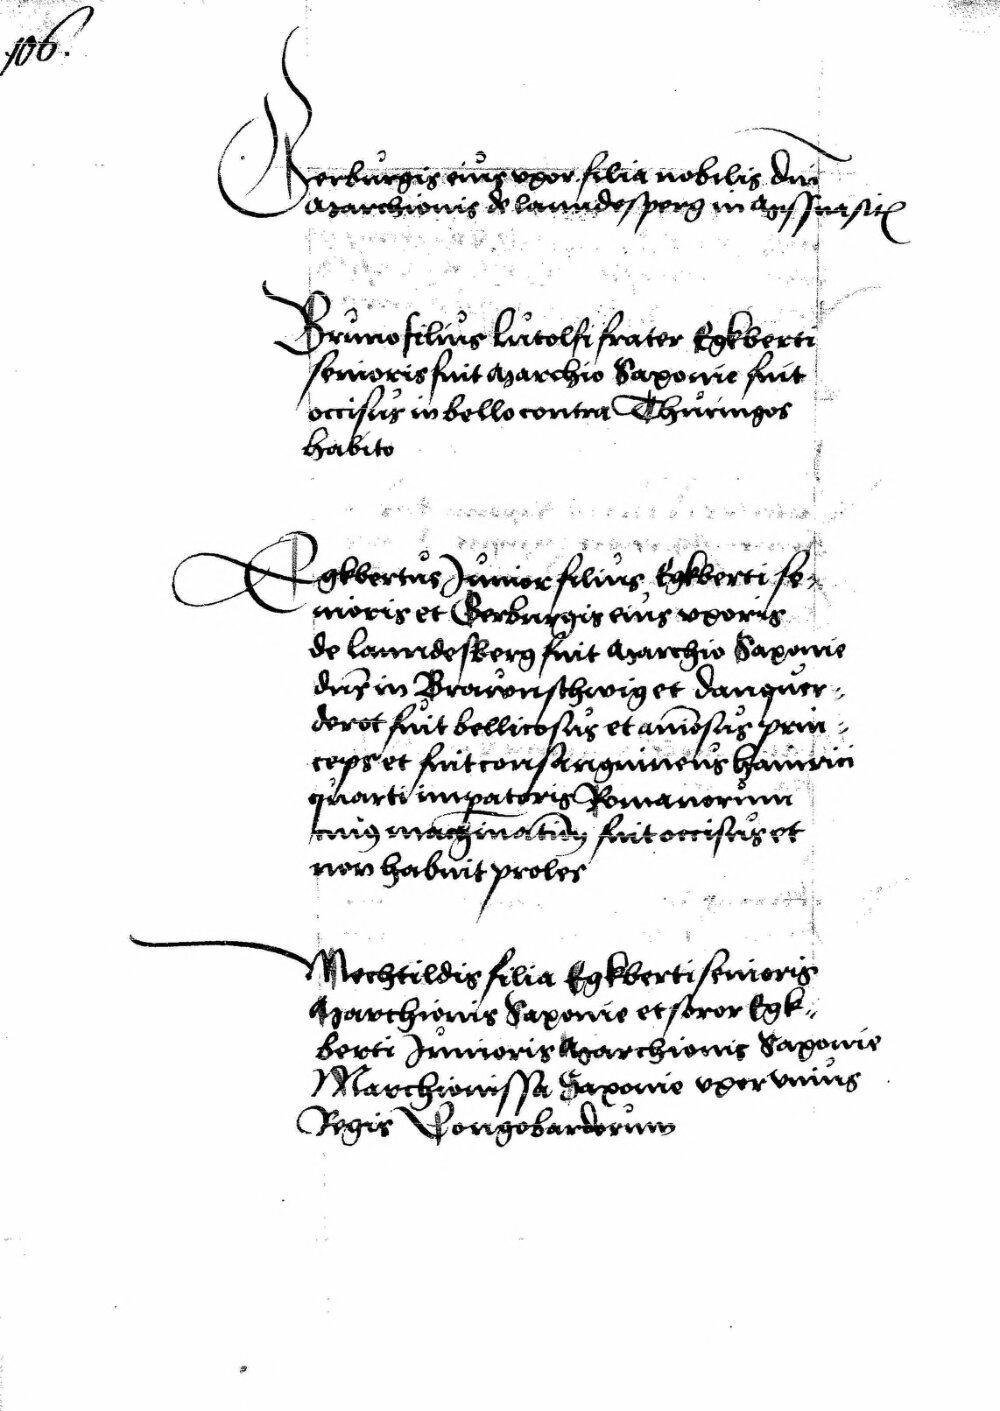 106.
Gerburgis eius uxor filia nobilis dni
Marchionis de lanndesperg in
Bruno filius Lutolfi frater Egkberti
senioris fuit Marchio Saxonie fuit
occisus in bello contra Thuringos
habito
Egkbertus Junior filius Egkberti se-
nioris et Gerburgis eius uxoris
de lanndesberg fuit Marchio Saxonie
dns in Braunschwig et danquer-
derot fuit bellicosus et amosus prin-
ceps et fuit consangwineus hainrici
quarti impatoris Romanorum
cuius machinationi fuit occisus et
non habuit proles
Mechtildis filia Egkberti senioris
Marchionis Saxonie et soror Egk-
berti Junioris Marchionis Saxonie
Marchionissa Saxonie uxor unius
Regis Longobardorum